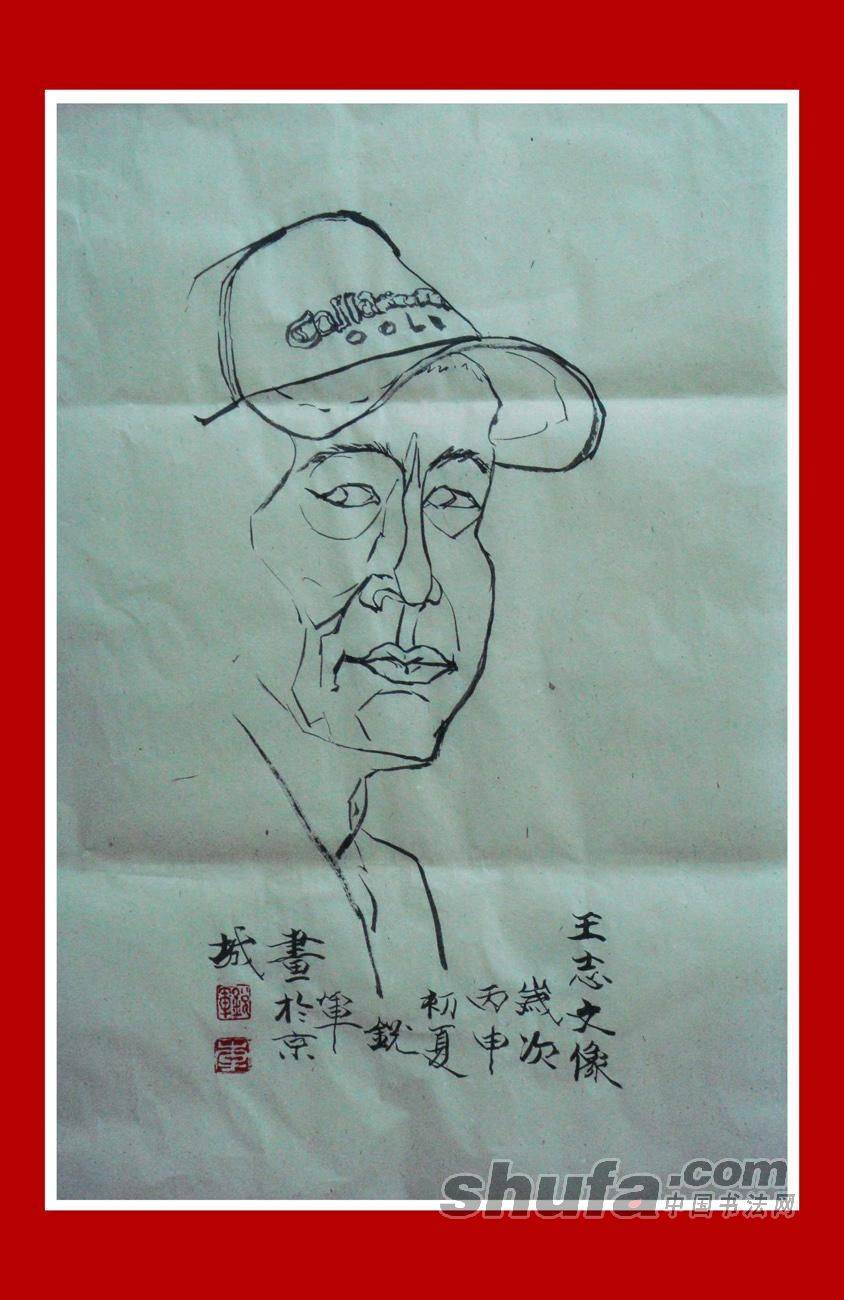 Callaway
GOLF
王志文像
歲次
丙申
初夏
銳
軍
畫於京
城
shufa.com
中国书法网